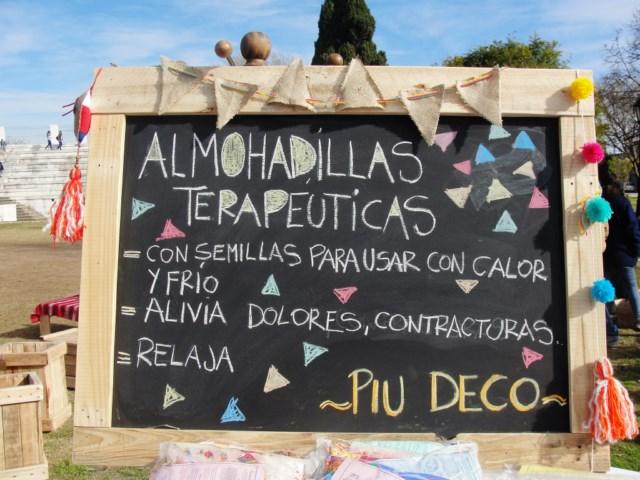 ALMOHADILLAS
TERAPEÚTICAS
= CON SEMILLAS PARA USAR CON CALOR
Y FRÍO
= ALIVIA DOLORES, CONTRACTURAS..
= RELAJA
~PIU DECO~